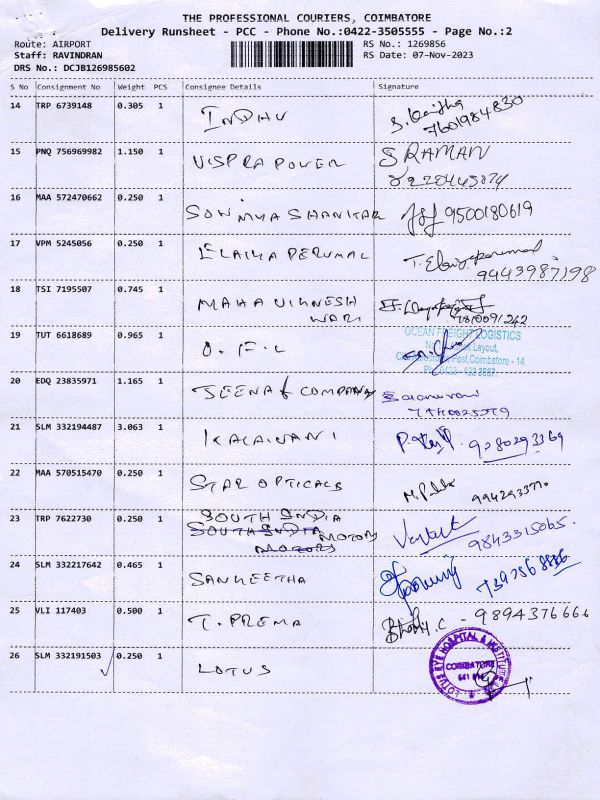 THE PROFESSIONAL COURIERS, COIMBATORE
Delivery Runsheet - PCC - Phone No.:0422-3505555 - Page No.:2
Route: AIRPORT RS No.: 1269856
Staff: RAVINDRAN RS Date: 07-Nov-2023
DRS No.: DCJB126985602
S No Consignment No Weight PCS Consignee Details Signature
14 TRP 6739148 0.305 1 INDHU
7601984830
15 PNQ 756969982 1.150 1 VISPRA POWER S RAMAN
16 MAA 572470662 0.250 1 SOWMIYA SHANKAR 9500180619
17 VPM 5245056 0.250 1 ELAIYA PERUMAL
9443987198
18 TSI 7195507 0.745 1 MAHA VIKNESH
WARI
19 TUT 6618689 0.965 1 O.F.L OCEAN FREIGHT LOGISTICS
Layout,
Post,Coimbatore - 14.
20 EDQ 23835971 1.165 1 JEENA & COMPANY
21 SLM 332194487 3.063 1 KALAIVANI
22 MAA 570515470 0.250 1 STAR OPTICALS
23 TRP 7622730 0.250 1 SOUTH INDIA
SOUTH INDIA MOTORS
MOTORS
Venkat 9843315065.
24 SLM 332217642 0.465 1 SANGEETHA
25 VLI 117403 0.500 1 T. PREMA C - 9894376666
26 SLM 332191503 0.250 1 LOTUS
LOTUS EYE HOSPITAL & INSTITUTE
COIMBATORE